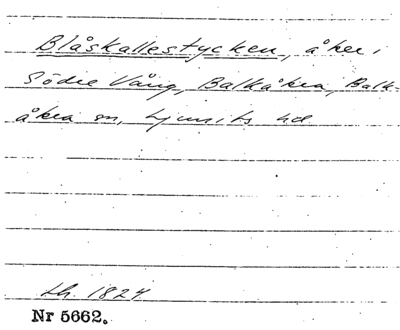 Blåskallestycken, åker i
Södre Vång, Balkåkra, Balk-
åkra sn, Ljunits hd
Lh. 1824
Nr 5662.